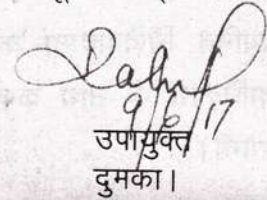 9/6/17
उपायुक्त
दुमका।